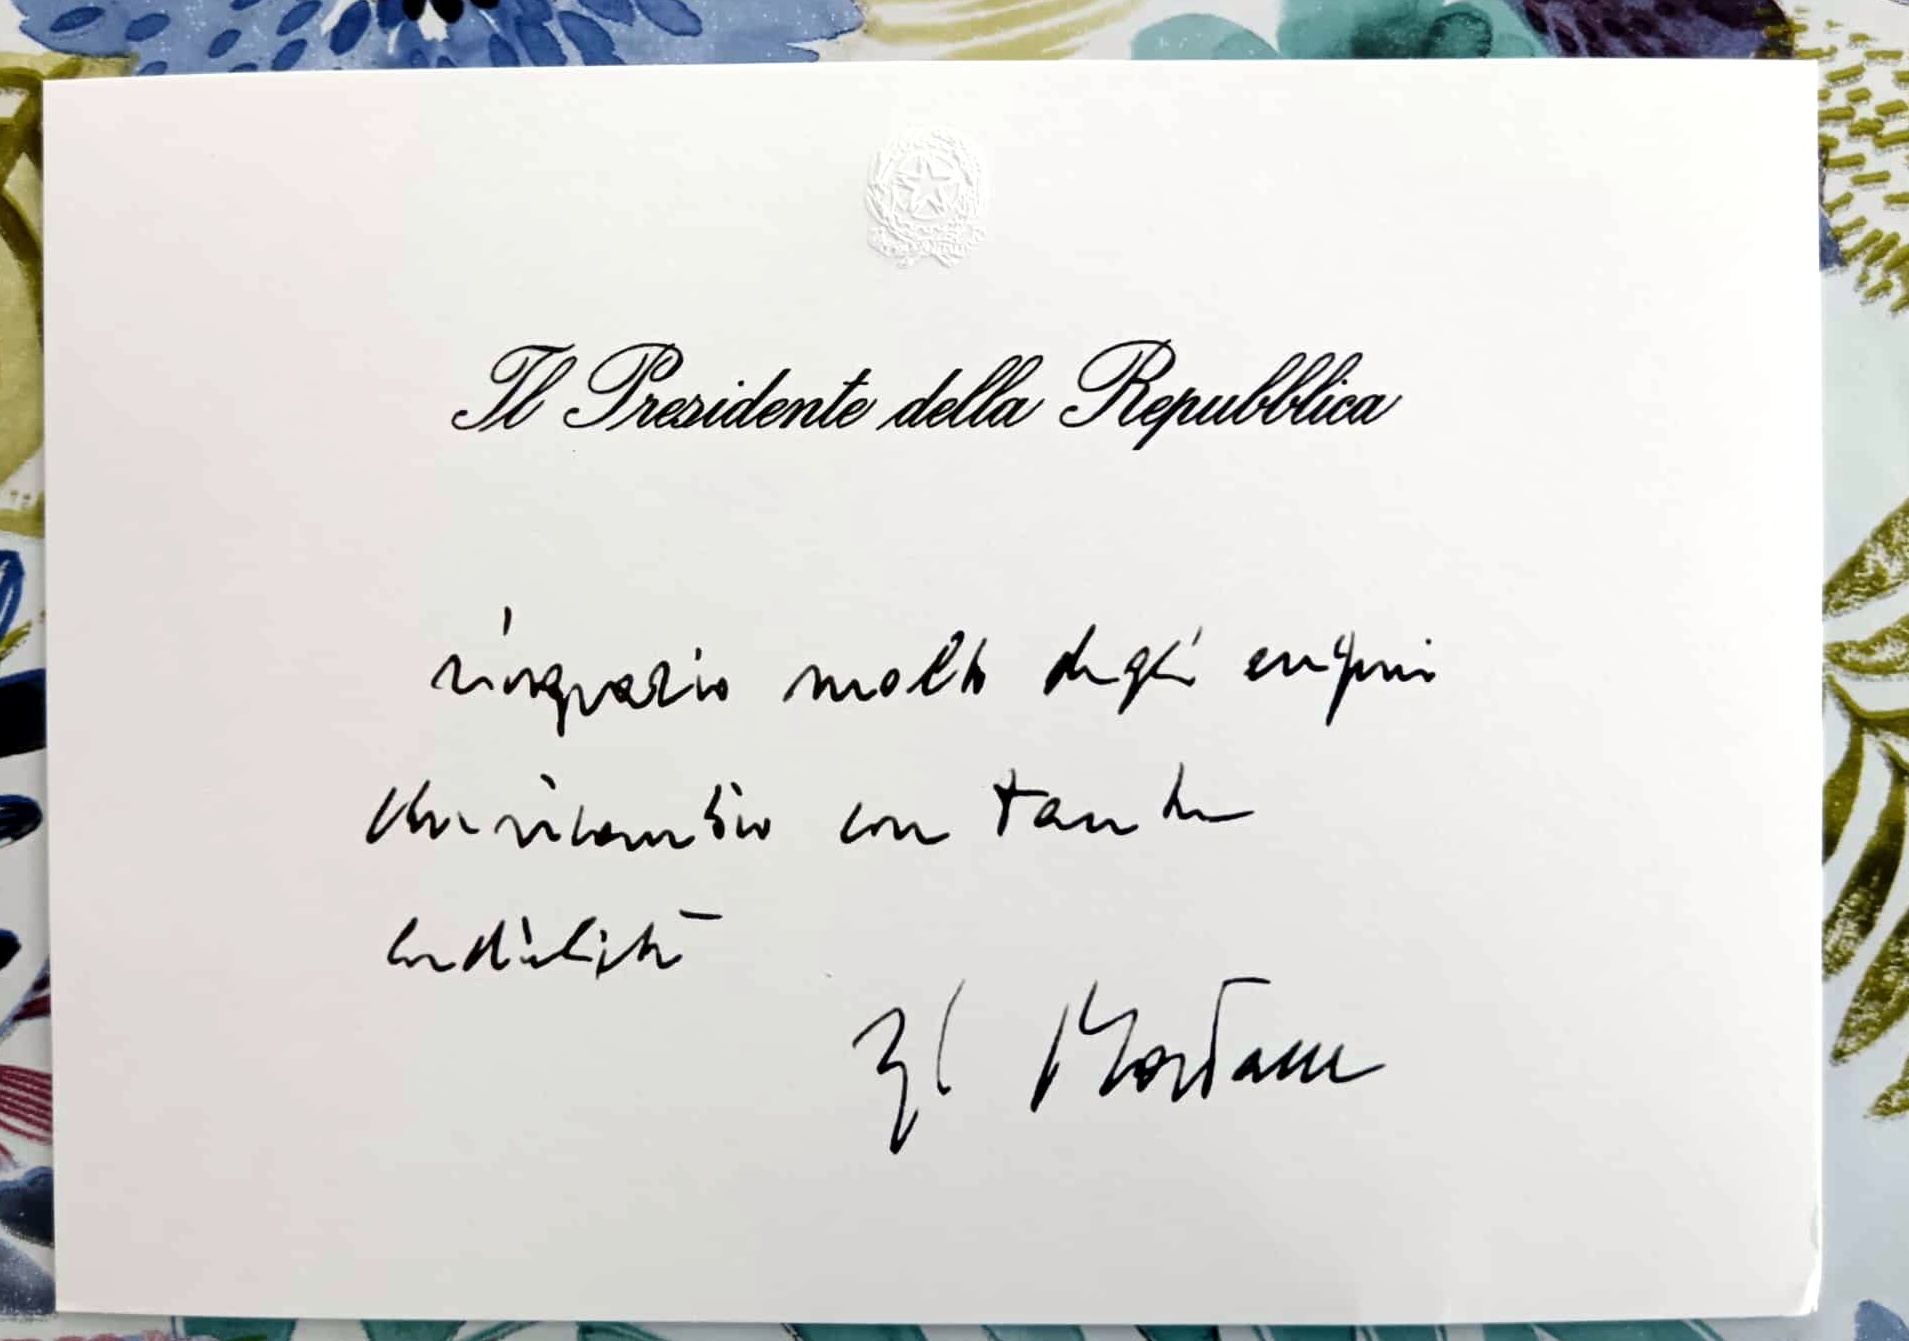 Il Presidente della Repubblica
ringrazio molto degli auguri
che ricambio con tanta
cordialità
Mattarella